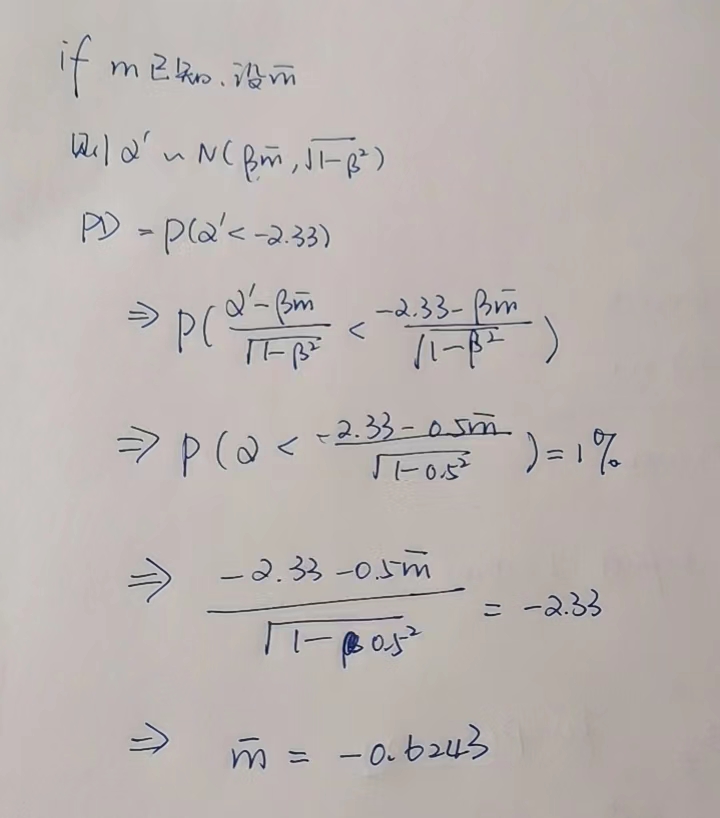 if m已知.设m̄
则 α' ~ N(βm̄, √1-β²)
PD = P(α' < -2.33)
⇒ P( (α'-βm̄)/√(1-β²) < (-2.33-βm̄)/√(1-β²) )
⇒ P(α < (-2.33-0.5m̄)/√(1-0.5²) ) = 1%
⇒ (-2.33-0.5m̄)/√(1-0.5²) = -2.33
⇒ m̄ = -0.6243